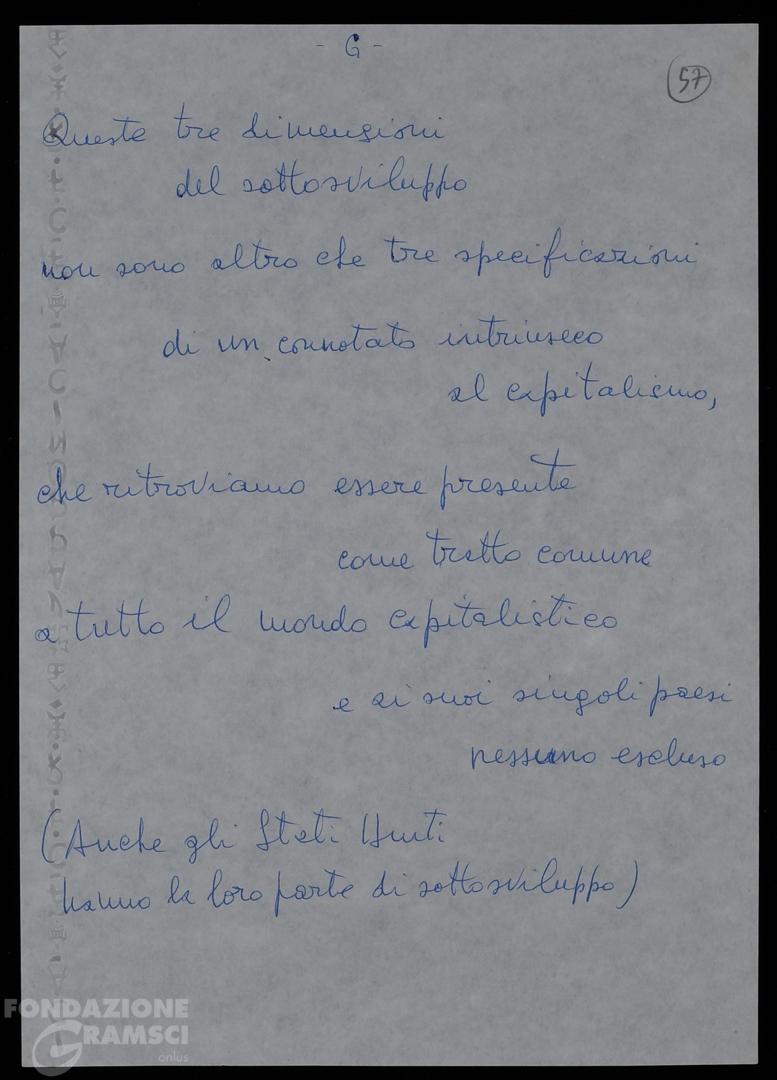 - G -
57
Queste tre dimensioni
del sottosviluppo
non sono altro che tre specificazioni
di un connotato intrinseco
al capitalismo,
che ritroviamo essere presente
come tratto comune
a tutto il mondo capitalistico
e ai suoi singoli paesi
nessuno escluso
(Anche gli Stati Uniti
hanno la loro parte di sottosviluppo)
FONDAZIONE
GRAMSCI
onlus